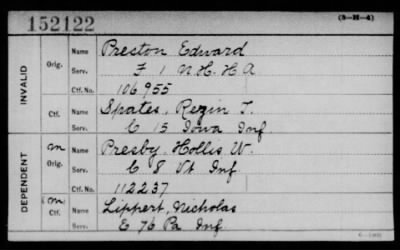 152122 (3-H-4)
INVALID Orig. Name Preston Edward
Serv. F 1 N.H. H A
Ctf. No. 106955
Ctf. Name Spates, Rezin T.
Serv. C 15 Iowa Inf
DEPENDENT m Orig. Name Presby, Hollis W.
Serv. C 8 Vt Inf
Ctf. No. 112237
(m) Ctf. Name Lippert, Nicholas
Serv. E 76 Pa Inf